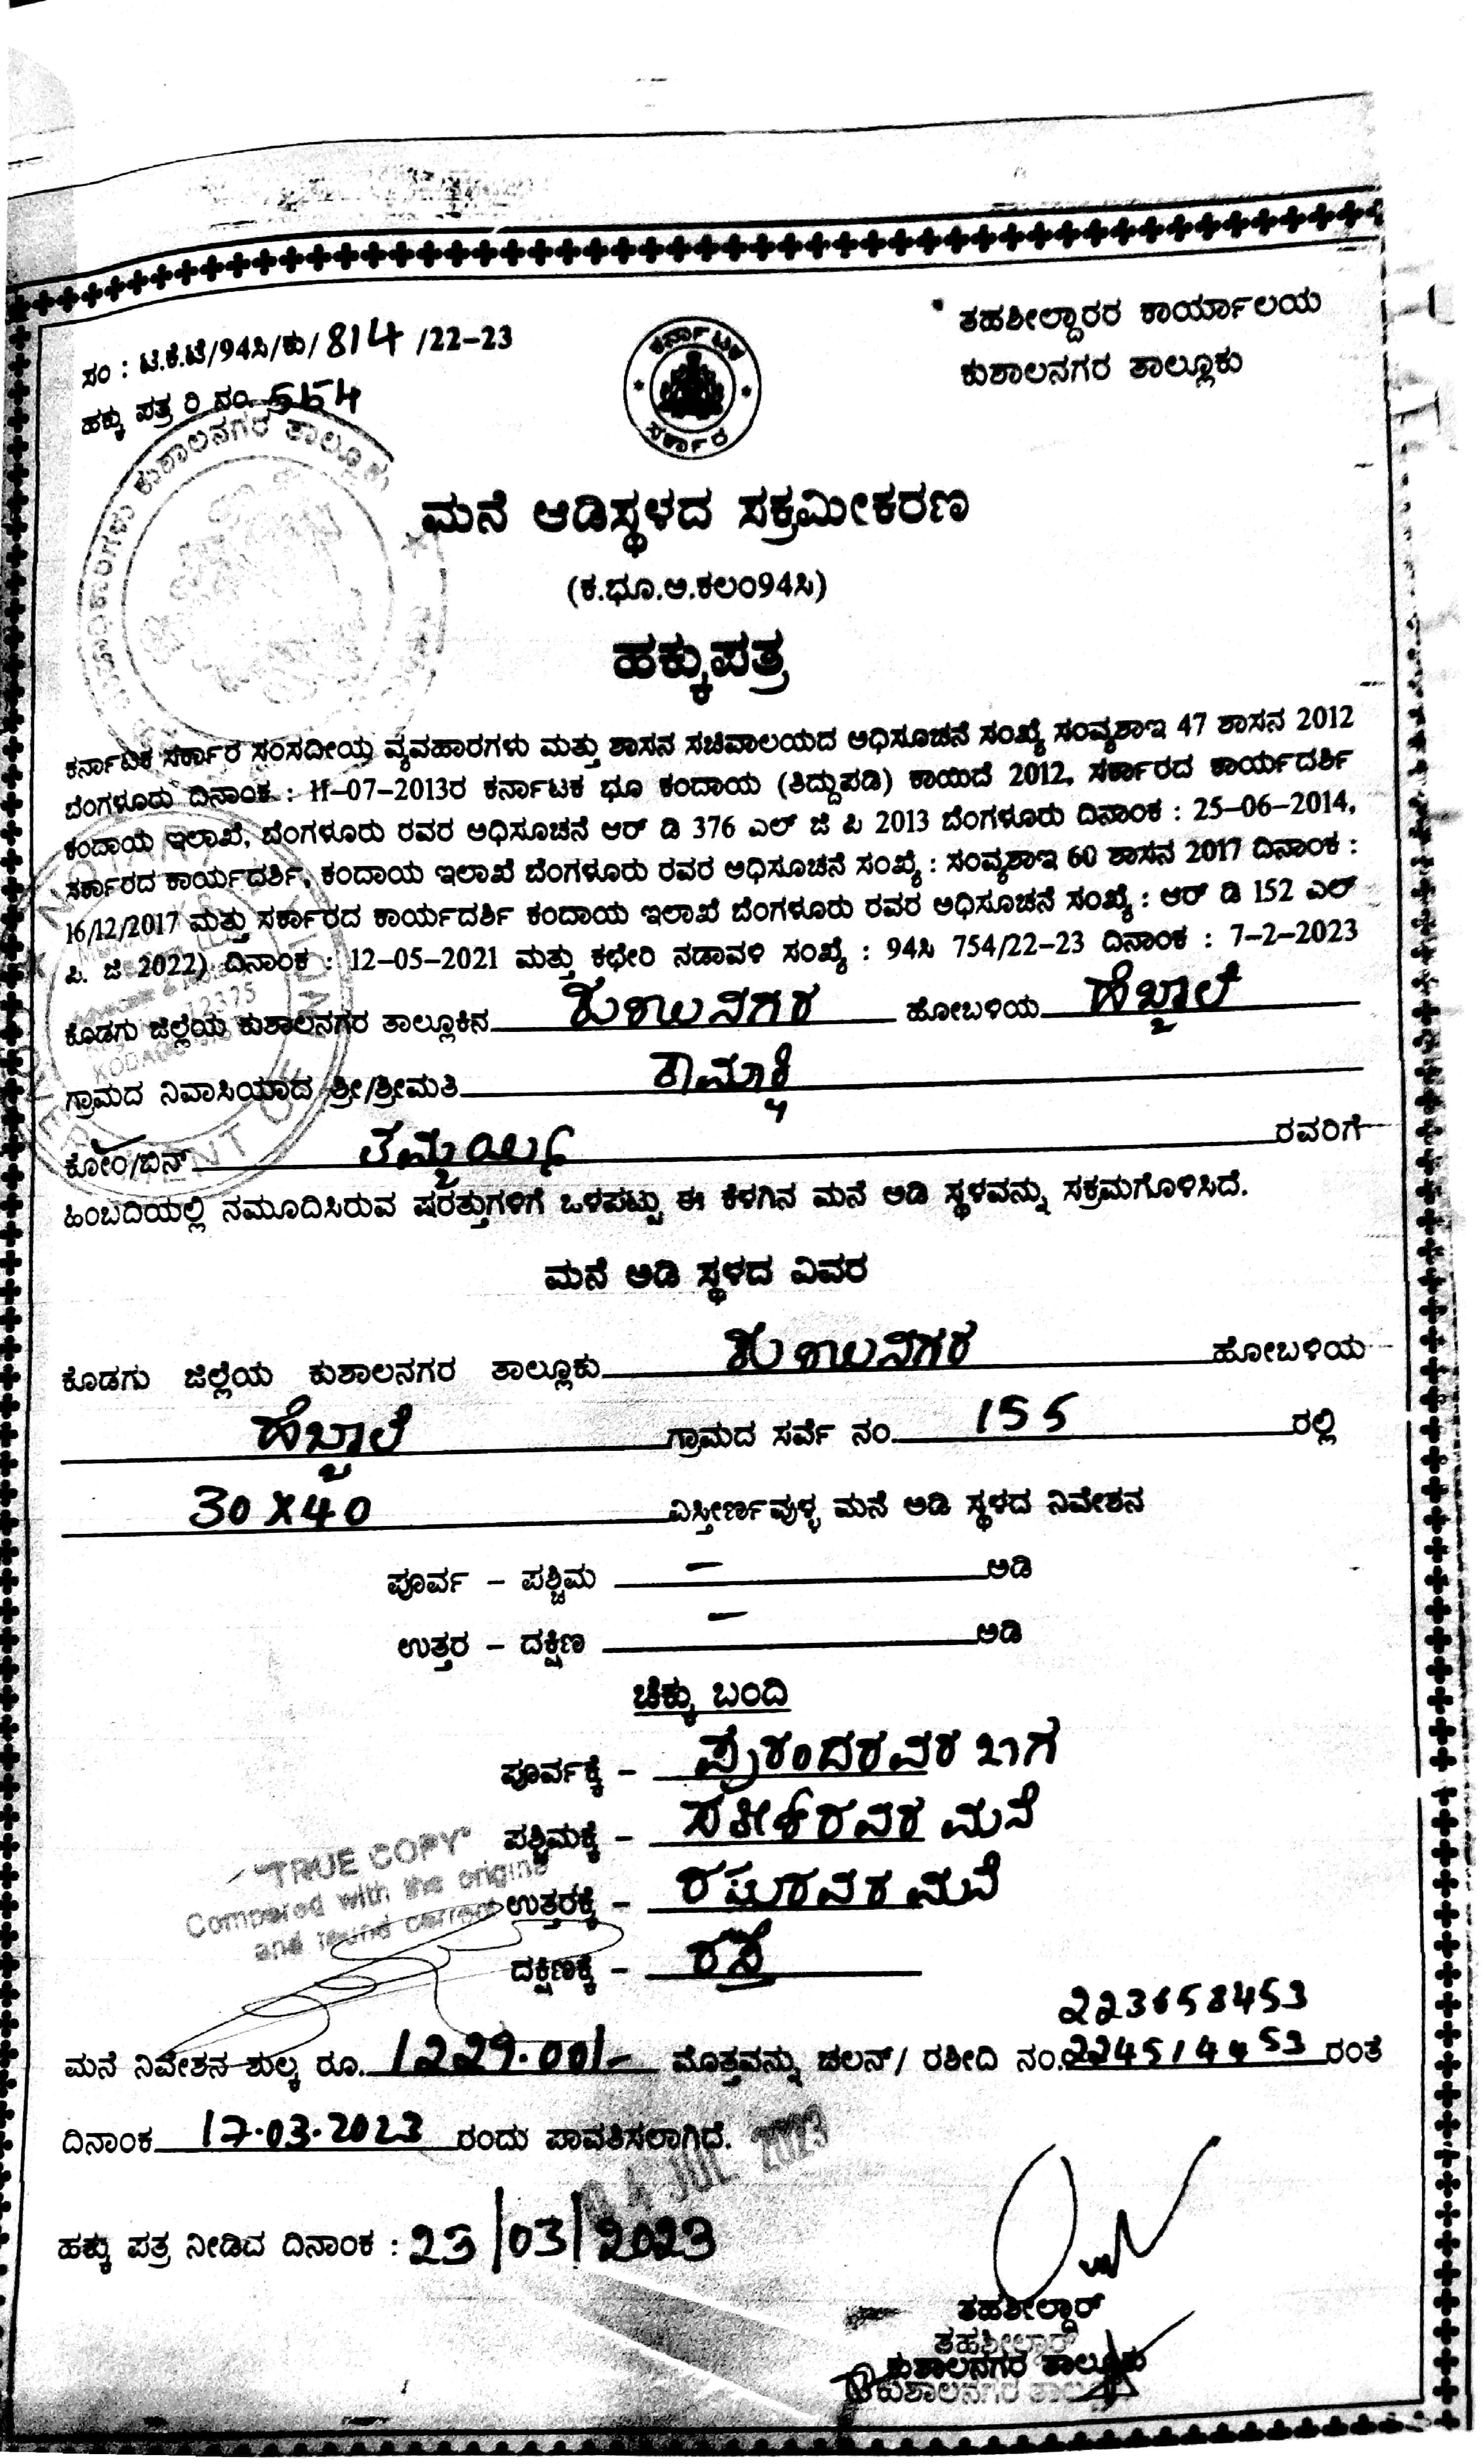 ತಹಶೀಲ್ದಾರರ ಕಾರ್ಯಾಲಯ
ಕುಶಾಲನಗರ ತಾಲ್ಲೂಕು
ಸಂ : ಟಿ.ಕೆ.ಟಿ/94ಸಿ/ಕು/814/22-23
ಹಕ್ಕು ಪತ್ರ ರಿ ನಂ.
ಕರ್ನಾಟಕ
ಸರ್ಕಾರ
ಕುಶಾಲನಗರ ತಾಲ್ಲೂಕು
ಮನೆ ಆಡಿಸ್ಥಳದ ಸಕ್ರಮೀಕರಣ
(ಕ.ಭೂ.ಅ.ಕಲಂ94ಸಿ)
ಹಕ್ಕುಪತ್ರ
ಕರ್ನಾಟಕ ಸರ್ಕಾರ ಸಂಸದೀಯ ವ್ಯವಹಾರಗಳು ಮತ್ತು ಶಾಸನ ಸಚಿವಾಲಯದ ಅಧಿಸೂಚನೆ ಸಂಖ್ಯೆ ಸಂವ್ಯಶಾಇ 47 ಶಾಸನ 2012
ಬೆಂಗಳೂರು ದಿನಾಂಕ : 11-07-2013ರ ಕರ್ನಾಟಕ ಭೂ ಕಂದಾಯ (ತಿದ್ದುಪಡಿ) ಕಾಯಿದೆ 2012, ಸರ್ಕಾರದ ಕಾರ್ಯದರ್ಶಿ
ಕಂದಾಯ ಇಲಾಖೆ, ಬೆಂಗಳೂರು ರವರ ಅಧಿಸೂಚನೆ ಆರ್ ಡಿ 376 ಎಲ್ ಜಿ ಪಿ 2013 ಬೆಂಗಳೂರು ದಿನಾಂಕ : 25-06-2014,
ಸರ್ಕಾರದ ಕಾರ್ಯದರ್ಶಿ, ಕಂದಾಯ ಇಲಾಖೆ ಬೆಂಗಳೂರು ರವರ ಅಧಿಸೂಚನೆ ಸಂಖ್ಯೆ : ಸಂವ್ಯಶಾಇ 60 ಶಾಸನ 2017 ದಿನಾಂಕ :
16/12/2017 ಮತ್ತು ಸರ್ಕಾರದ ಕಾರ್ಯದರ್ಶಿ ಕಂದಾಯ ಇಲಾಖೆ ಬೆಂಗಳೂರು ರವರ ಅಧಿಸೂಚನೆ ಸಂಖ್ಯೆ : ಆರ್ ಡಿ 152 ಎಲ್
ಪಿ. ಜಿ 2022) ದಿನಾಂಕ : 12-05-2021 ಮತ್ತು ಕಛೇರಿ ನಡಾವಳಿ ಸಂಖ್ಯೆ : 94ಸಿ 754/22-23 ದಿನಾಂಕ : 7-2-2023
ಕೊಡಗು ಜಿಲ್ಲೆಯ ಕುಶಾಲನಗರ ತಾಲ್ಲೂಕಿನ ಕುಶಾಲನಗರ ಹೋಬಳಿಯ ಹೆಬ್ಬಾಲೆ
ಗ್ರಾಮದ ನಿವಾಸಿಯಾದ ಶ್ರೀ/ಶ್ರೀಮತಿ ಕಾಮಾಕ್ಷಿ
ಕೋಂ/ಬಿನ್ ರವರಿಗೆ
ಹಿಂಬದಿಯಲ್ಲಿ ನಮೂದಿಸಿರುವ ಷರತ್ತುಗಳಿಗೆ ಒಳಪಟ್ಟು ಈ ಕೆಳಗಿನ ಮನೆ ಅಡಿ ಸ್ಥಳವನ್ನು ಸಕ್ರಮಗೊಳಿಸಿದೆ.
ಮನೆ ಅಡಿ ಸ್ಥಳದ ವಿವರ
ಕೊಡಗು ಜಿಲ್ಲೆಯ ಕುಶಾಲನಗರ ತಾಲ್ಲೂಕು ಕುಶಾಲನಗರ ಹೋಬಳಿಯ
ಹೆಬ್ಬಾಲೆ ಗ್ರಾಮದ ಸರ್ವೆ ನಂ. 155 ರಲ್ಲಿ
30X40 ವಿಸ್ತೀರ್ಣವುಳ್ಳ ಮನೆ ಅಡಿ ಸ್ಥಳದ ನಿವೇಶನ
ಪೂರ್ವ – ಪಶ್ಚಿಮ – ಅಡಿ
ಉತ್ತರ – ದಕ್ಷಿಣ – ಅಡಿ
ಚೆಕ್ಕು ಬಂದಿ
ಪೂರ್ವಕ್ಕೆ – ಜಾಗ
ಪಶ್ಚಿಮಕ್ಕೆ – ಮನೆ
ಉತ್ತರಕ್ಕೆ – ರಘುರವರ ಮನೆ
ದಕ್ಷಿಣಕ್ಕೆ – ರಸ್ತೆ
"TRUE COPY"
Compared with the origina
and found correct
223658453
ಮನೆ ನಿವೇಶನ ಶುಲ್ಕ ರೂ. 1229.00/- ಮೊತ್ತವನ್ನು ಚಲನ್/ ರಶೀದಿ ನಂ. 224514453 ರಂತೆ
ದಿನಾಂಕ 17.03.2023 ರಂದು ಪಾವತಿಸಲಾಗಿದೆ.
4 JUL 2023
ಹಕ್ಕು ಪತ್ರ ನೀಡಿದ ದಿನಾಂಕ : 23/03/2023
ತಹಶೀಲ್ದಾರ್
ತಹಶೀಲ್ದಾರ್
ಕುಶಾಲನಗರ ತಾಲ್ಲೂಕು
ಕುಶಾಲನಗರ ತಾಲ್ಲೂಕು